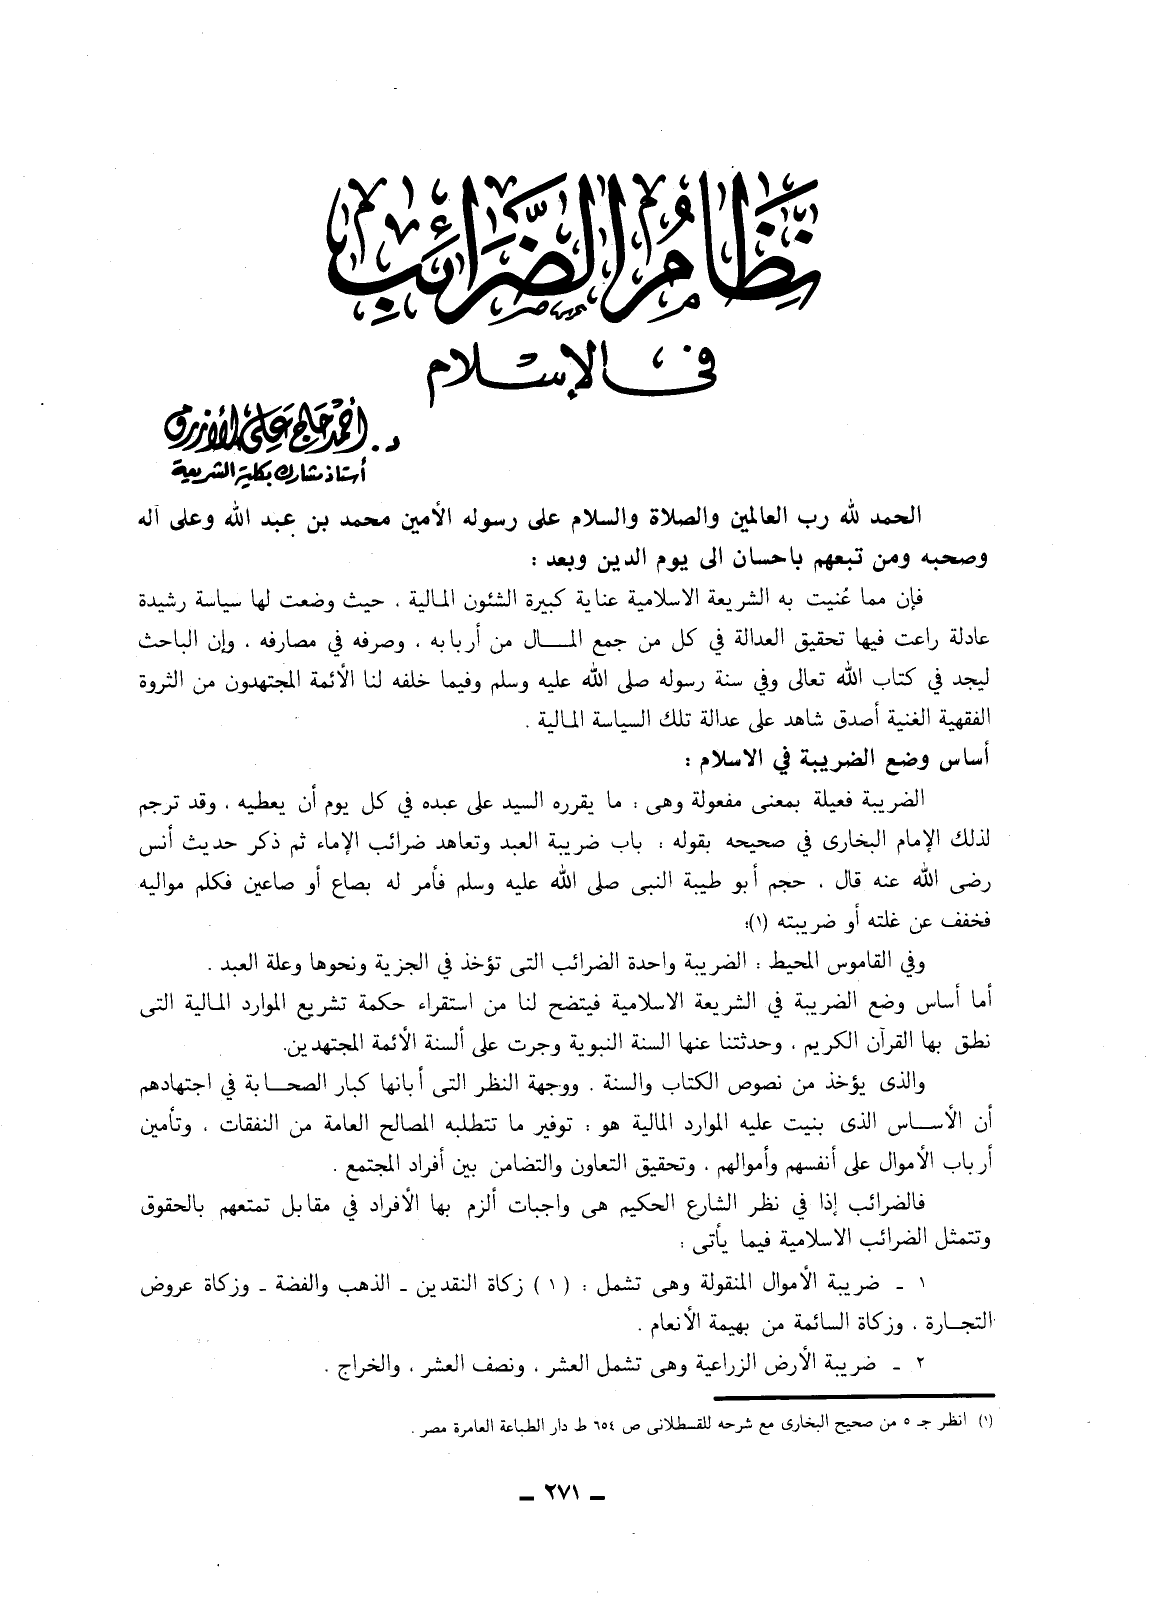 نظام الضرائب
فى الإسلام
د. أحمد حاج على الأزرق
أستاذ مشارك بكلية الشريعة
الحمد لله رب العالمين والصلاة والسلام على رسوله الأمين محمد بن عبد الله وعلى آله
وصحبه ومن تبعهم باحسان الى يوم الدين وبعد :
فإن مما عُنيت به الشريعة الاسلامية عناية كبيرة الشئون المالية ، حيث وضعت لها سياسة رشيدة
عادلة راعت فيها تحقيق العدالة في كل من جمع المال من أربابه ، وصرفه في مصارفه ، وإن الباحث
ليجد في كتاب الله تعالى وفي سنة رسوله صلى الله عليه وسلم وفيما خلفه لنا الأئمة المجتهدون من الثروة
الفقهية الغنية أصدق شاهد على عدالة تلك السياسة المالية .
أساس وضع الضريبة في الاسلام :
الضريبة فعيلة بمعنى مفعولة وهى : ما يقرره السيد على عبده في كل يوم أن يعطيه ، وقد ترجم
لذلك الإمام البخارى في صحيحه بقوله : باب ضريبة العبد وتعاهد ضرائب الإماء ثم ذكر حديث أنس
رضى الله عنه قال ، حجم أبو طيبة النبى صلى الله عليه وسلم فأمر له بصاع أو صاعين فكلم مواليه
فخفف عن غلته أو ضريبته (١)؛
وفي القاموس المحيط : الضريبة واحدة الضرائب التى تؤخذ في الجزية ونحوها وعلة العبد .
أما أساس وضع الضريبة في الشريعة الاسلامية فيتضح لنا من استقراء حكمة تشريع الموارد المالية التى
نطق بها القرآن الكريم ، وحدثتنا عنها السنة النبوية وجرت على ألسنة الأئمة المجتهدين.
والذى يؤخذ من نصوص الكتاب والسنة . ووجهة النظر التى أبانها كبار الصحابة في اجتهادهم
أن الأساس الذى بنيت عليه الموارد المالية هو : توفير ما تتطلبه المصالح العامة من النفقات ، وتأمين
أرباب الأموال على أنفسهم وأموالهم ، وتحقيق التعاون والتضامن بين أفراد المجتمع .
فالضرائب إذا في نظر الشارع الحكيم هى واجبات ألزم بها الأفراد في مقابل تمتعهم بالحقوق
وتتمثل الضرائب الاسلامية فيما يأتى :
١ ـ ضريبة الأموال المنقولة وهى تشمل : ( ١ ) زكاة النقدين ـ الذهب والفضة ـ وزكاة عروض
التجارة ، وزكاة السائمة من بهيمة الأنعام .
٢ ـ ضريبة الأرض الزراعية وهى تشمل العشر ، ونصف العشر ، والخراج .
(١) انظر جـ ٥ من صحيح البخارى مع شرحه للقسطلانى ص ٦٥٤ ط دار الطباعة العامرة مصر .
ـ ٢٧١ ـ